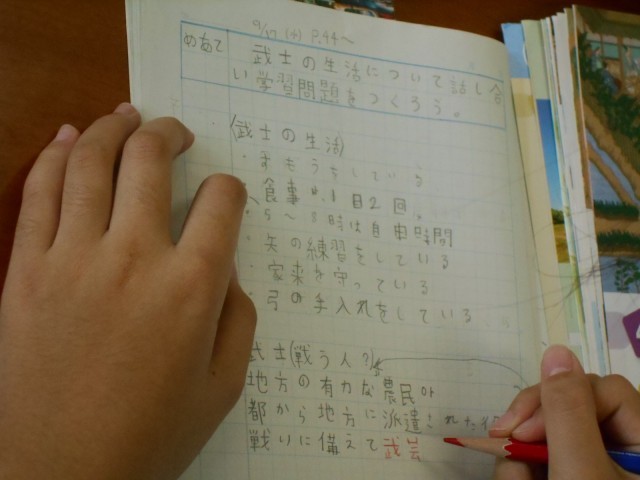 9/17 (4) P.44〜
めあて
武士の生活について話し合
い学習問題をつくろう。
(武士の生活)
をしている
食事は、1日2回。
5〜 時は自由時間
・矢の練習をしている
・家来が守っている
・弓の手入れをしている
武士(戦う人?)
地方の有力な農民や
都から地方に派遣された
戦いに備えて武芸